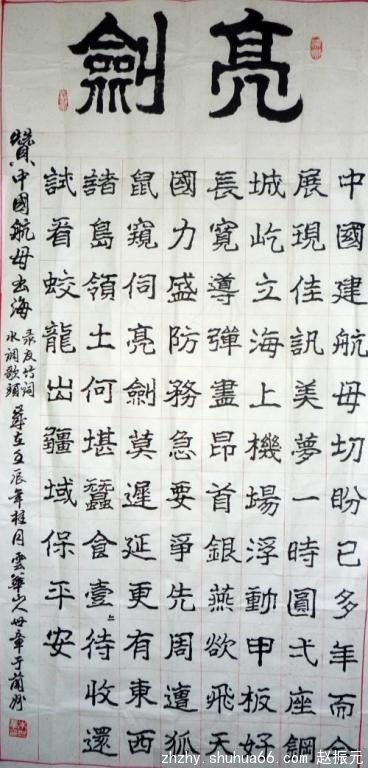 亮劍
中國建航母切盼已多年而今
展現佳訊美夢一時圓弌座鋼
城屹立海上機場浮動甲板好
長寬導彈盡昂首銀燕欲飛天
國力盛防務急要爭先周遭狐
鼠窺伺亮劍莫遲延更有東西
諸島領土何堪蠶食壹〻待收還
試看蛟龍出疆域保平安
贊中國航母出海
录友竹词
水调歌頭
歲在壬辰年桂月雲華山人世章于蘭州
zhzhy.shuhua66.com 赵振元